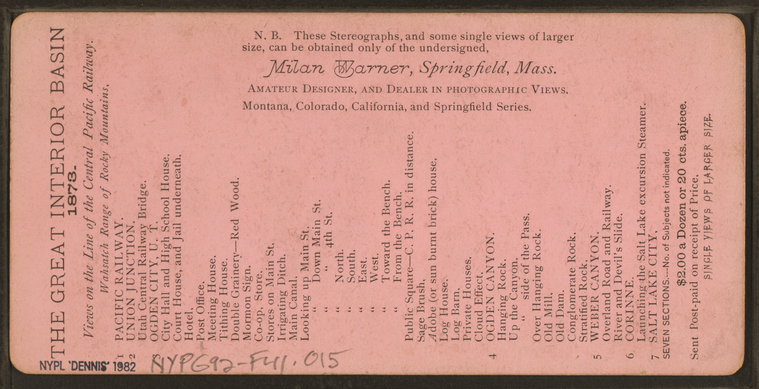 N. B. These Stereographs, and some single views of larger
size, can be obtained only of the undersigned,
Milan Warner, Springfield, Mass.
AMATEUR DESIGNER, AND DEALER IN PHOTOGRAPHIC VIEWS.
Montana, Colorado, California, and Springfield Series.
THE GREAT INTERIOR BASIN
1873.
Views on the Line of the Central Pacific Railway.
Wahsatch Range of Rocky Mountains,
1 PACIFIC RAILWAY.
2 UNION JUNCTION.
Utah Central Railway Bridge.
OGDEN CITY, U. T.
City Hall and High School House.
Court House, and Jail underneath.
Hotel.
Post Office.
Meeting House.
Tithing House.
Double Grainery—Red Wood.
Mormon Sign.
Co-op. Store.
Stores on Main St.
Irrigating Ditch.
Main Canal.
Looking up Main St.
" Down Main St.
" " 4th St.
" North.
" South.
" East.
" West.
" Toward the Bench.
" From the Bench.
Public Square—C. P. R. R. in distance.
Sage Brush.
Adobe (or sun burnt brick) house.
Log House.
Log Barn.
Private Houses.
Cloud Effect.
4 OGDEN CANYON.
Hanging Rock.
Up the Canyon
" " side of the Pass.
Over Hanging Rock.
Old Mill.
Old Dam.
Conglomerate Rock.
Stratified Rock.
5 WEBER CANYON.
Overland Road and Railway.
River and Devil's Slide.
6 CORINNE.
Launching the Salt Lake excursion Steamer.
7 SALT LAKE CITY.
SEVEN SECTIONS.—No. of Subjects not indicated.
$2.00 a Dozen or 20 cts. apiece.
Sent Post-paid on receipt of Price.
SINGLE VIEWS OF LARGER SIZE.
NYPL 'DENNIS' 1982
NYPG92-F41.015